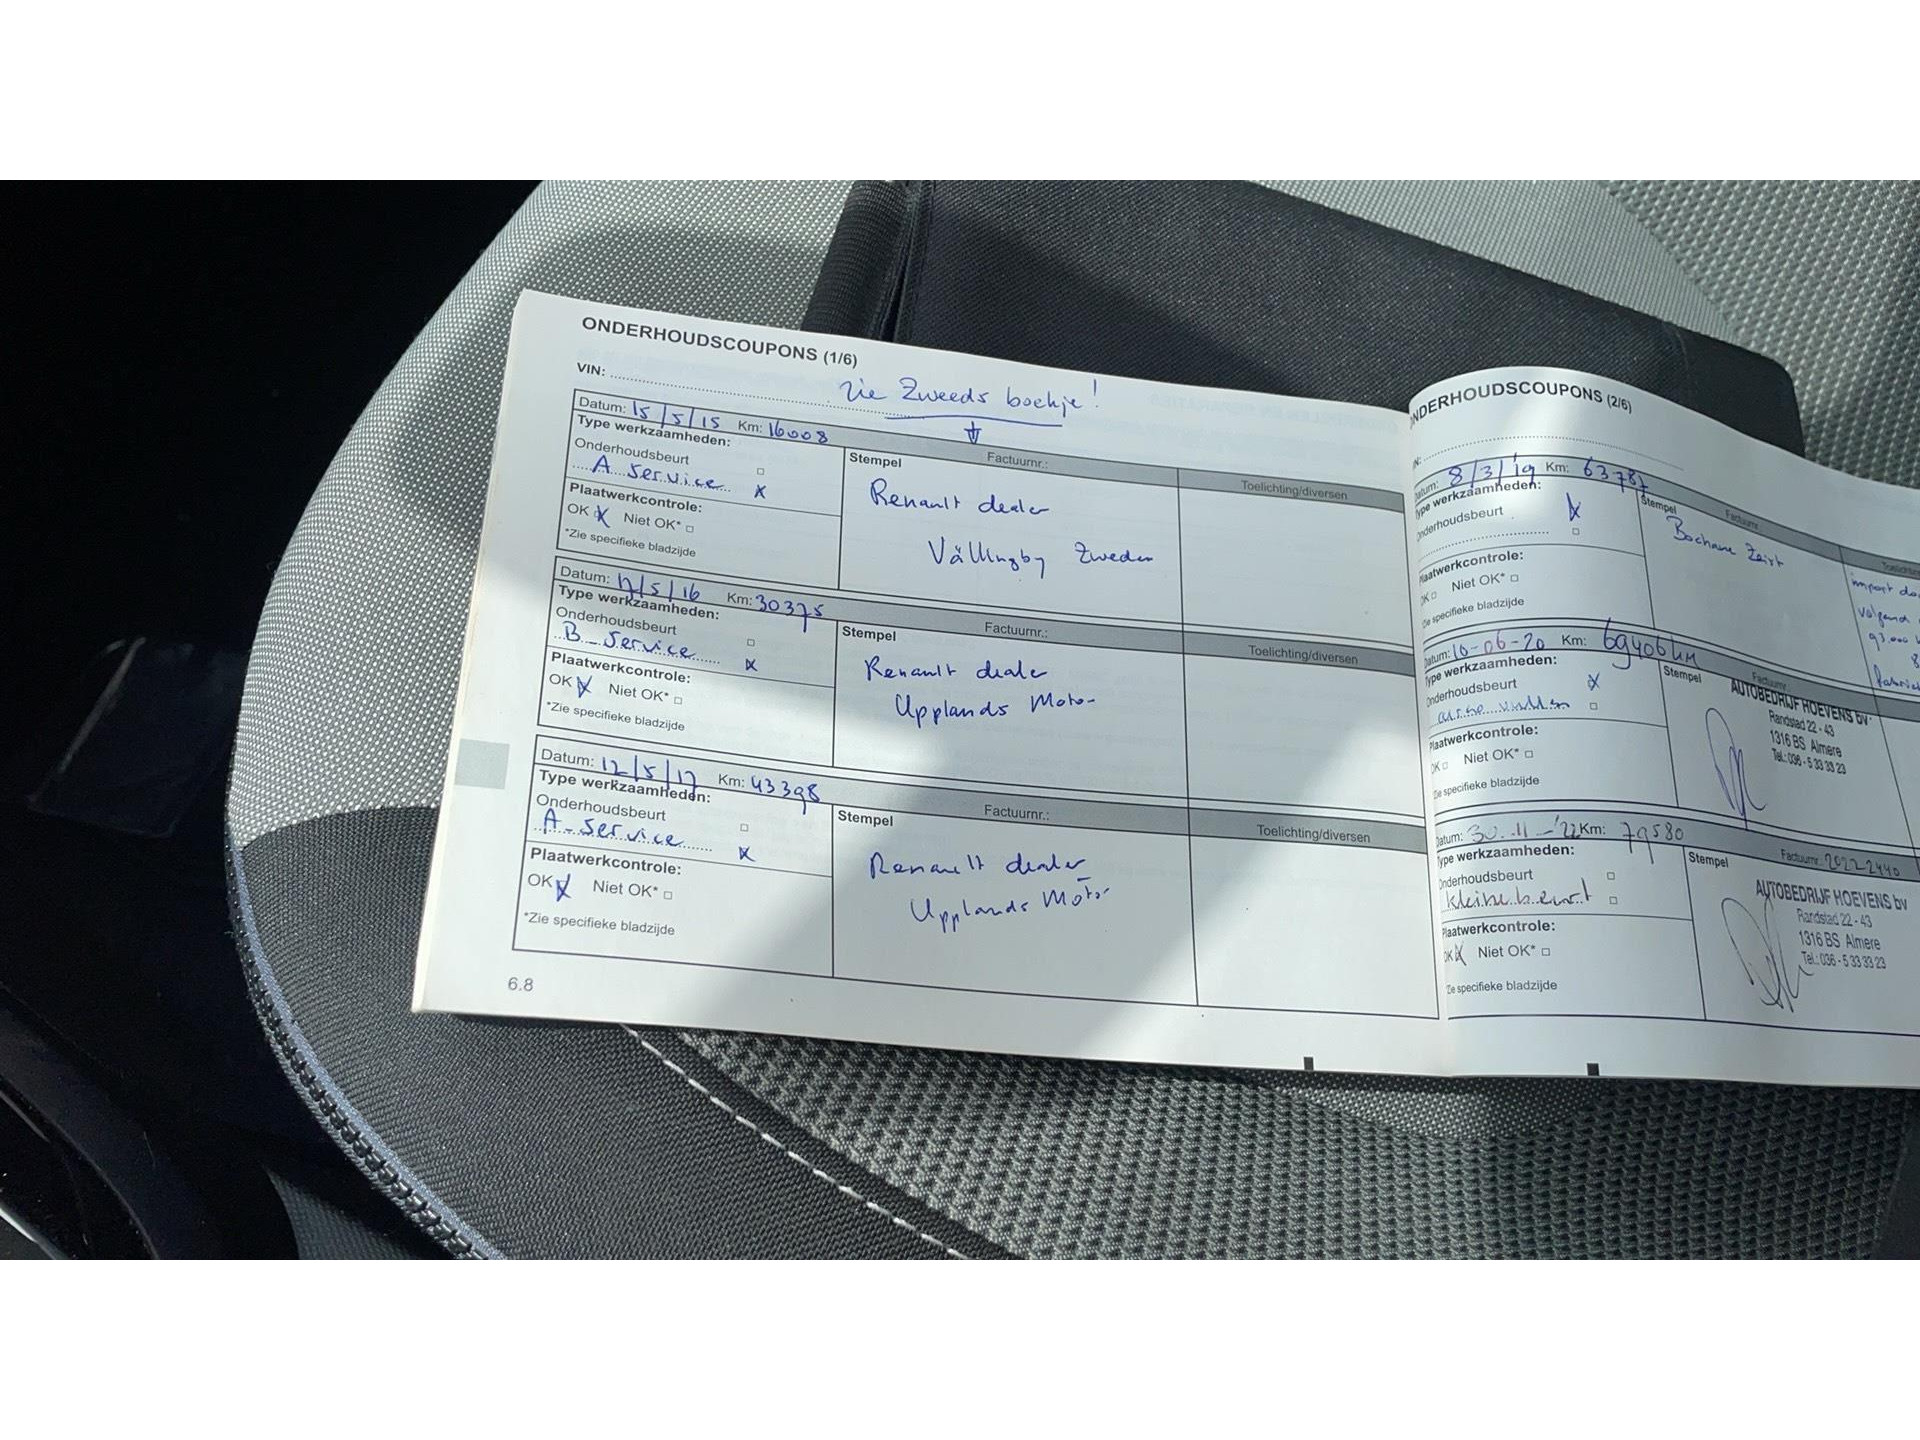 ONDERHOUDSCOUPONS (1/6)
VIN:
zie Zweeds boekje!
Datum: 15/5/15 Km: 16008
Type werkzaamheden:
Onderhoudsbeurt
A service
Plaatwerkcontrole:
OK Niet OK*
*Zie specifieke bladzijde
Stempel
Factuurnr.:
Toelichting/diversen
Renault dealer
Vällingby Zweden
Datum: 17/5/16 Km: 30375
Type werkzaamheden:
Onderhoudsbeurt
B - Service
Plaatwerkcontrole:
OK Niet OK*
*Zie specifieke bladzijde
Stempel
Factuurnr.:
Toelichting/diversen
Renault dealer
Upplands Motor
Datum: 12/5/17 Km: 43398
Type werkzaamheden:
Onderhoudsbeurt
A - Service
Plaatwerkcontrole:
OK Niet OK*
*Zie specifieke bladzijde
Stempel
Factuurnr.:
Toelichting/diversen
Renault dealer
Upplands Motor
6.8
ONDERHOUDSCOUPONS (2/6)
Datum: 8/3/'19 Km: 63787
Type werkzaamheden:
Onderhoudsbeurt
Plaatwerkcontrole:
OK Niet OK*
Zie specifieke bladzijde
Stempel
Factuurnr
Bochane Zeist
import
volgend
93.000
Datum: 10-06-20 Km: 69406 km
Type werkzaamheden:
Onderhoudsbeurt
Plaatwerkcontrole:
OK Niet OK*
Zie specifieke bladzijde
Stempel
Factuurnr
AUTOBEDRIJF HOEVENS bv
Randstad 22 - 43
1316 BS Almere
Tel.: 036 - 5 33 33 23
Datum: 30-11-'22 Km: 79580
Type werkzaamheden:
Onderhoudsbeurt
kleine beurt
Plaatwerkcontrole:
OK Niet OK*
Zie specifieke bladzijde
Stempel
Factuurnr.: 2022-2440
AUTOBEDRIJF HOEVENS bv
Randstad 22 - 43
1316 BS Almere
Tel.: 036 - 5 33 33 23